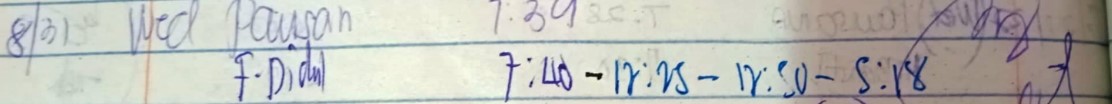 8/31 Wed Pausan 7:39
F. Didul 7:40 - 12:25 - 12:50 - 5:18